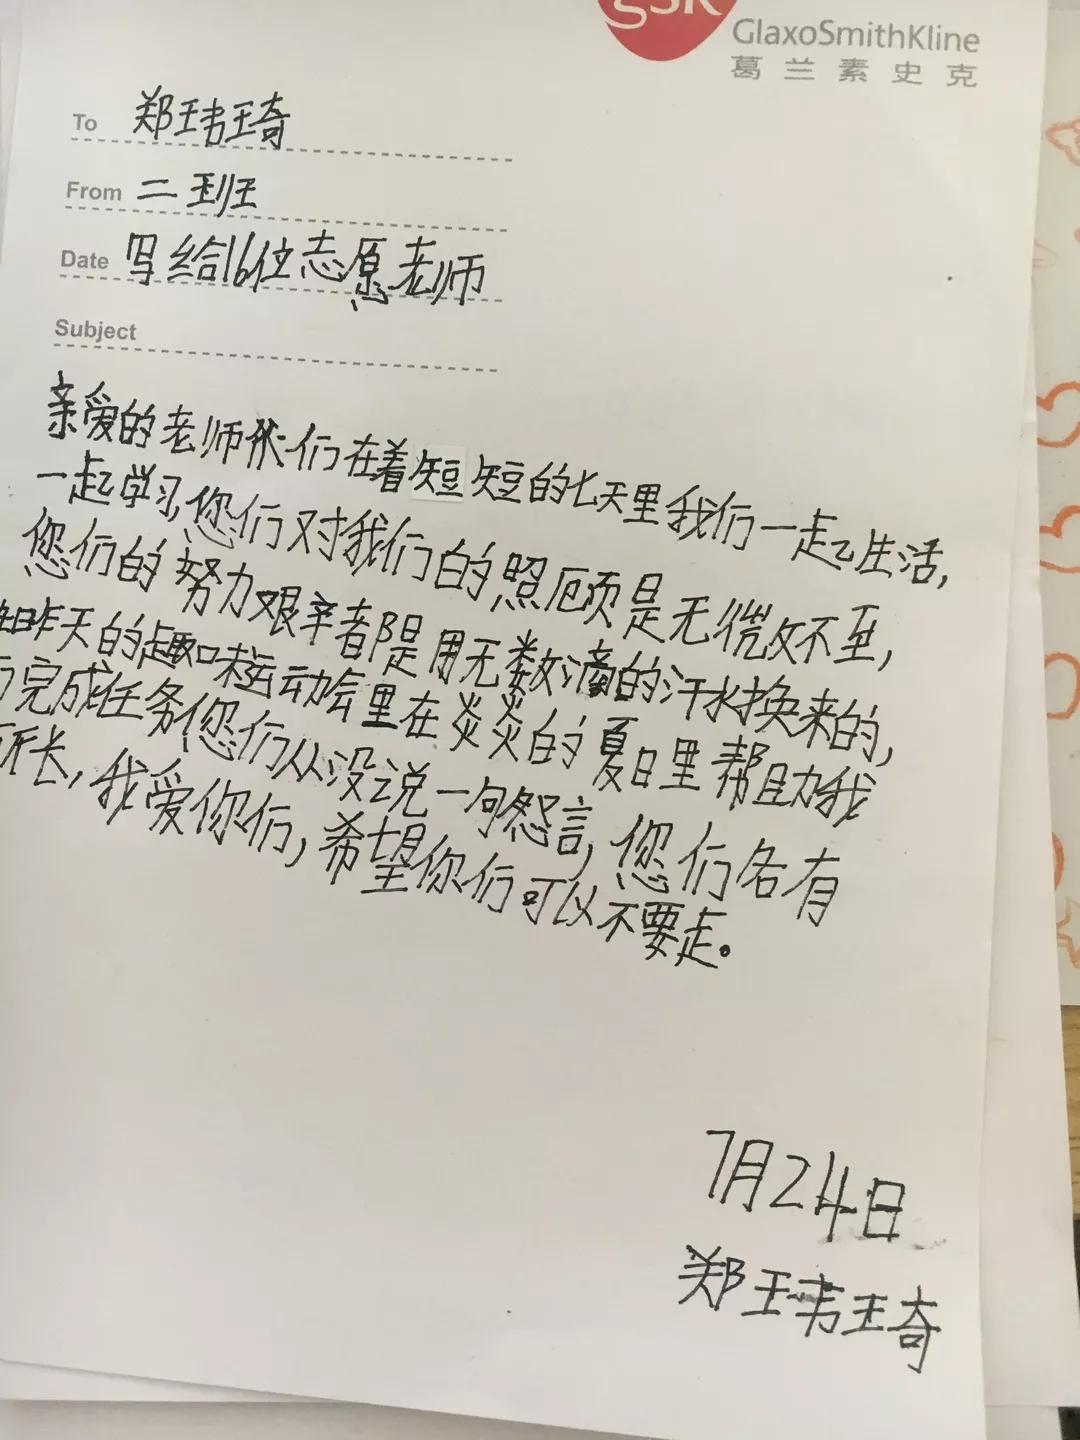 GSK
GlaxoSmithKline
葛兰素史克
To 郑玮琦
From 二班
Date 写给16位志愿老师
Subject
亲爱的老师们在着短短的七天里我们一起生活,
一起学习,您们对我们的照顾是无微不至,
您们的努力艰辛都是用无数滴的汗水换来的,
昨天的趣味运动会里在炎炎的夏日里帮助我
完成任务您们从没说一句怨言,您们各有
所长,我爱你们,希望你们可以不要走。
7月24日
郑玮琦